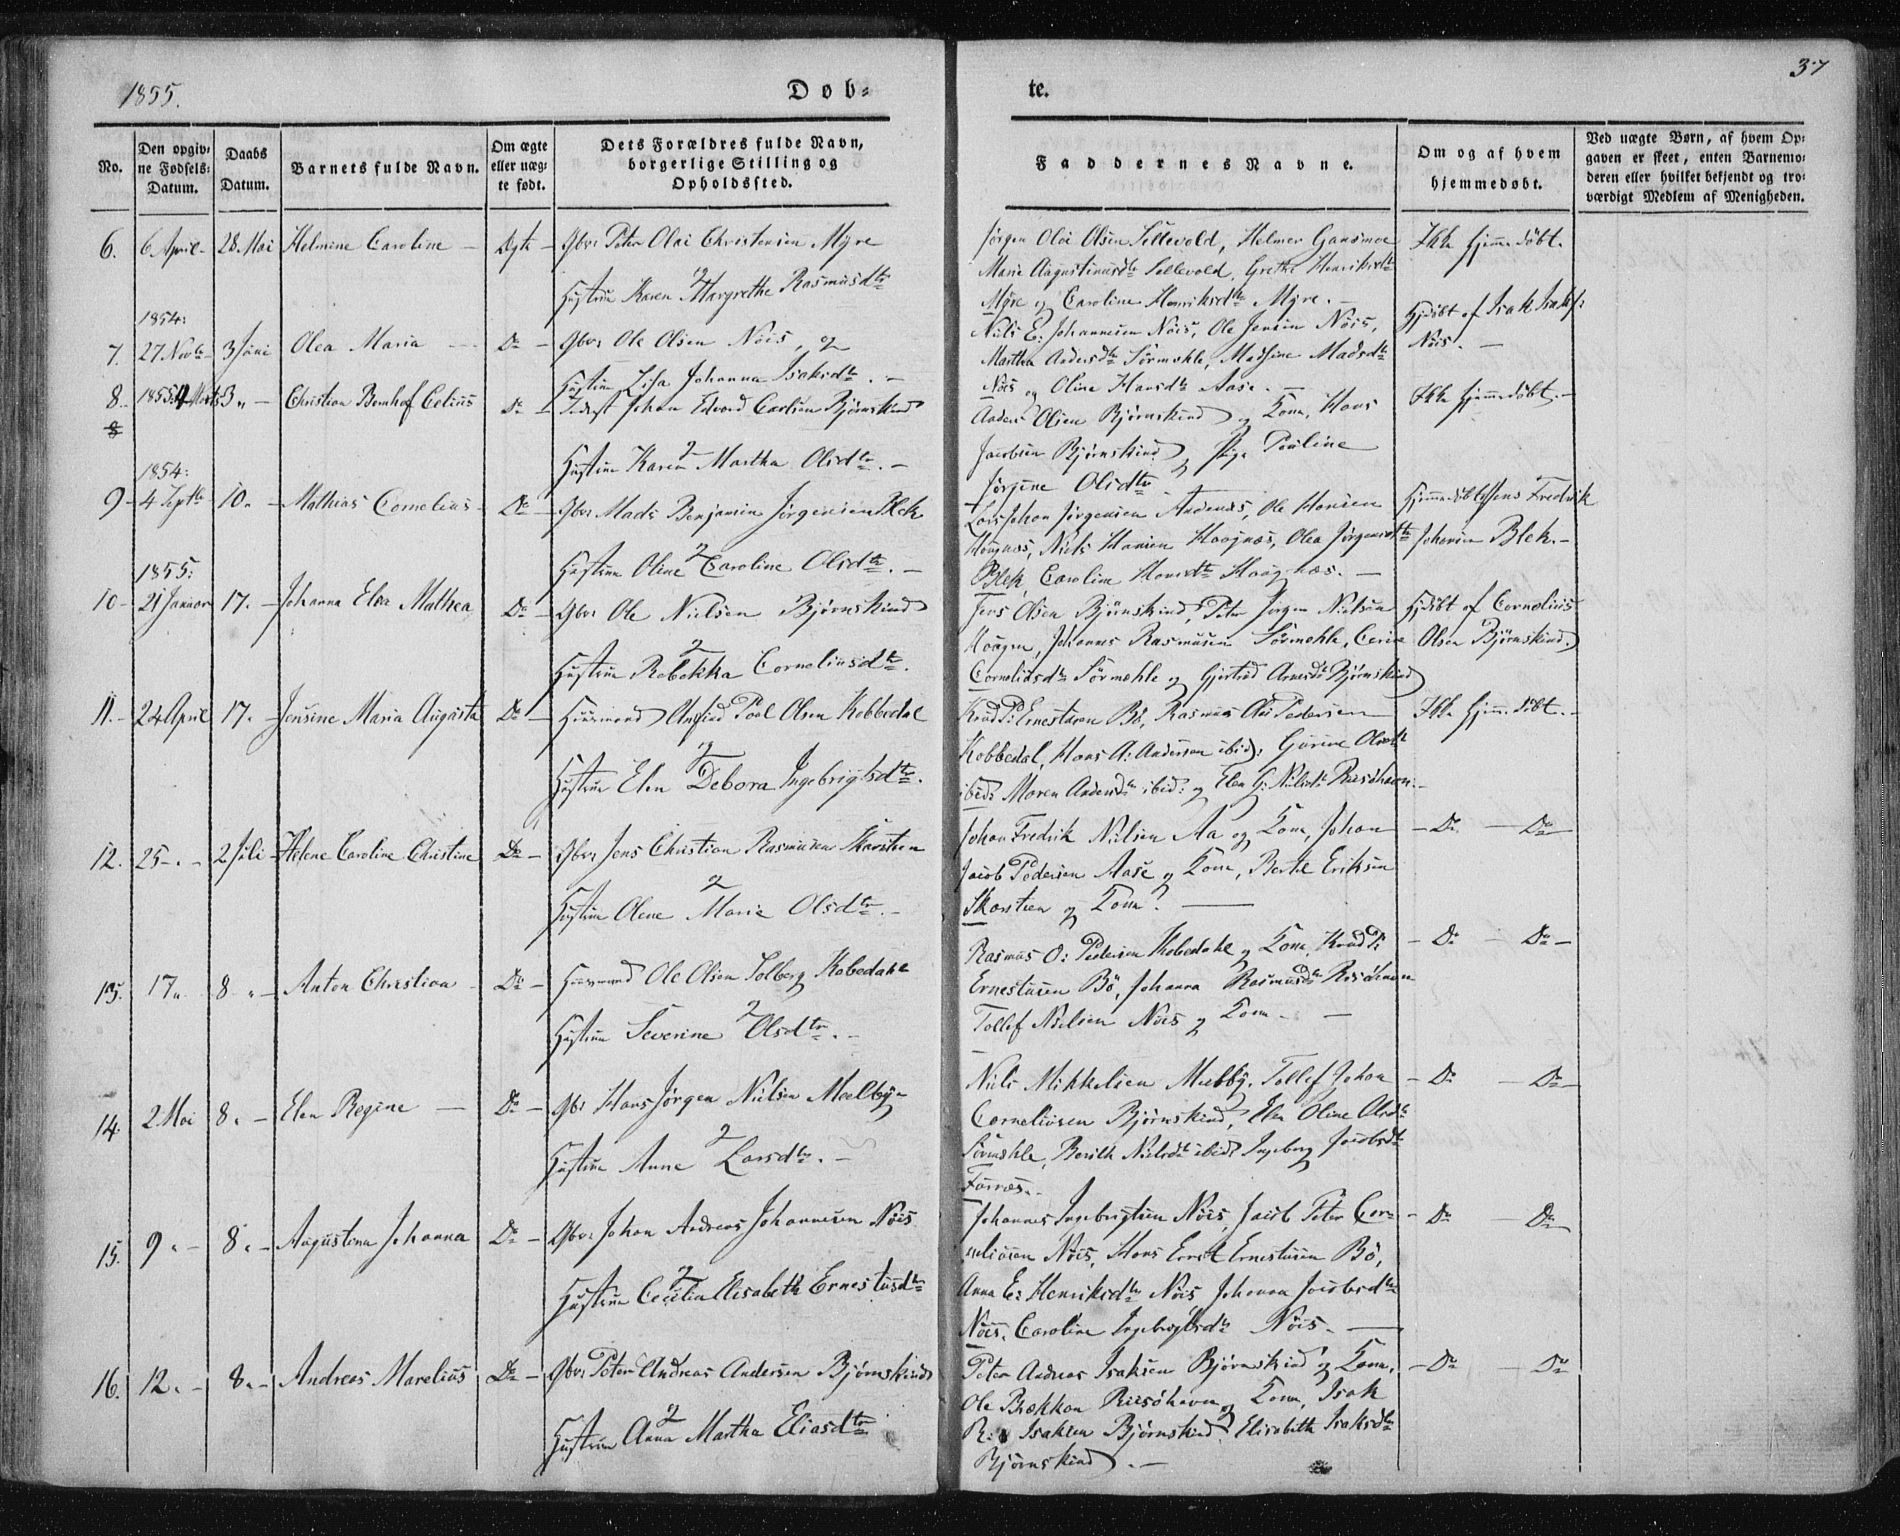 1855.
Døb-
te.
37
No.
Den opgiv-
ne Fødsels-
Datum.
Daabs
Datum.
Barnets fulde Navn.
Om ægte
eller uæg-
te født.
Dets Forældres fulde Navn,
borgerlige Stilling og
Opholdssted.
Faddernes Navne.
Om og af hvem
hjemmedøbt.
Ved uægte Børn, af hvem Op-
gaven er skeet, enten Barnemo-
deren eller hvilket bekjendt og tro-
værdigt Medlem af Menigheden.
6. 6 April 28 Mai Helmine Caroline — Ægte Gbr: Peter Olai Christensen Myre
og
Hustrue Karen Margrethe Rasmusdtr
Jørgen Oloi Olsen Sellevold, Helmer Gansmoe
Marie Augustinusdtr Sellevold, Grethe Henriksdtr
Myre og Caroline Henriksdtr Myre. —
Ikke hjemmedøbt.
1854:
7. 27 Novbr 3 Juni Olea Maria — Do — Gbr: Ole Olsen Nöis, og
Hustrue Lisa Johanna Isaksdtr. —
Niels E: Johannesen Nöis, Ole Jensen Nöis,
Martha Andersdtr Sörmehle, Madsine Madsdtr
Nöis og Oline Hansdtr Aase. —
Hjdöbt af Isak Isaks:
Nöis. —
8. 1855: 4 Marts 3 " — Christian Bernhof Celius Do — Inderst Johan Edvard Carlsen Bjørnskind
8
og
Hustrue Karen Martha Olsdtr. —
Anders Olsen Bjørnskind og Kone, Hans
Jacobsen Bjørnskind og Pige Pauline
Jørgine Olsdtr
Ikke hjemmedøbt. —
1854:
9 — 4 Septbr 10 " — Mathias Cornelius — Do — Gbr: Mads Benjamin Jørgensen Blek
og
Hustrue Oline Caroline Olsdtr. —
Lars Johan Jørgensen Andenæs, Ole Hansen
Haugnæs, Niels Hansen Haagnæs, Olea Jørgensdtr
Blek, Caroline Hansdtr Haagnæs. —
Hjemmedöbt af Jens Fredrik
Johansen Blek. —
1855:
10 — 21 Januar 17. — Johanna Elea Mathea Do — Gbr: Ole Nielsen Bjørnskind
og
Hustrue Rebekka Corneliusdtr.
Jens Olsen Bjørnskind, Peter Jørgen Nielsen
Haagen, Johannes Rasmusen Sörmehle, Cerine
Corneliusdtr Sörmehle og Gjertrud Arnesdtr Bjørnskind
Hjdöbt af Cornelius
Olsen Bjørnskind.
11. — 24 April 17. — Jensine Maria Augusta Do — Huusmand Anfind Poel Olsen Kobbedal
og
Hustrue Elen Debora Ingebrigtsdtr.
Knud P: Ernestusen Bö, Rasmus Olai Pedersen
Kobbedal, Hans A: Andersen ibid: Gurine Olsdtr
ibid: Maren Andersdtr ibid: og Elen G: Nielsdtr Risöhavn. —
Ikke hjemmedöbt. —
12. 25 — . — 2 Juli — Helene Caroline Christine Do — Gbr: Jens Christian Rasmusen Skarstien
og
Hustrue Olene Marie Olsdtr. —
Johan Fredrik Nielsen Aa og Kone, Johan
Jacob Pedersen Aase og Kone, Berthe Eriksen
Skarstien og Kone. —
— Do — Do —
13. 17 " 8 " — Anton Christian — Do — Huusmand Ole Olsen Solberg Kobedahl
og
Hustrue Severine Olsdtr. —
Rasmus O: Pedersen Kobedahl og Kone, Knud P:
Ernestusen Bö, Johanna Rasmusdtr Risöhavn
Tollef Nielsen Nöis og Kone. —
— Do — Do —
14. 2 Mai 8 . — Elen Regine — Do — Gbr: Hans Jørgen Nielsen Meelby —
og
Hustrue Anne Larsdtr. —
Niels Mikkelsen Meelby, Tollef Johan
Corneliusen Bjørnskind, Oline Olsdtr
Sörmehle, Berith Nielsdtr ibid: Ingeborg Jacobsdtr
— Do — Do —
15. 9 . — 8 . — Augustinu Johanna Do — Gbr: Johan Andreas Johannesen Nöis
og
Hustrue Cecilia Elisabeth Ernestusdtr
Johannes Ingebrigtsen Nöis, Jacob Peter Cor-
neliusen Nöis, Hans Ernst Ernestusen Bö,
Anna E: Henriksdtr Nöis Johanna Jacobsdtr
Nöis, Caroline Ingebrigtsdtr Nöis. —
— Do — Do —
16. 12 . — 8 . — Andreas Marelius Do — Gbr: Peter Andreas Andersen Bjørnskind
og
Hustrue Anna Martha Eliasdtr
Peter Andreas Isaksen Bjørnskind og Kone,
Ole Brekkan Riisöhavn og Kone, Isak
R: Isaksen Bjørnskind og Elisabeth Isaksdtr
Bjørnskind. —
— Do — Do